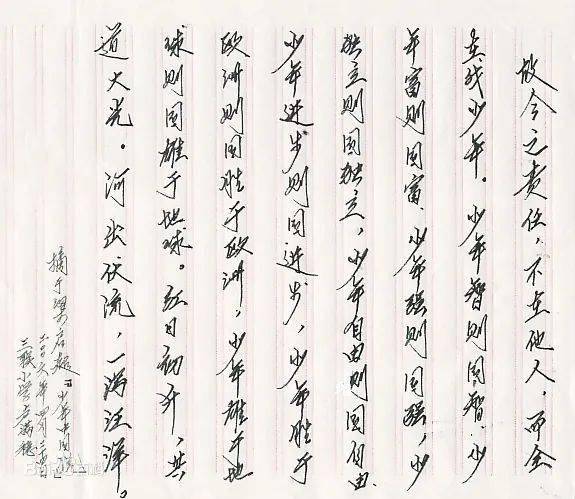 故今之责任，不在他人，而全
在我少年。少年智则国智，少
年富则国富，少年强则国强，少
独立则国独立，少年自由则国自由
少年进步则国进步，少年胜于
欧洲则国胜于欧洲，少年雄于地
球则国雄于地球。红日初升，其
道大光。河出伏流，一泻汪洋。
摘于梁启超「少年中国说」
二00六年四月